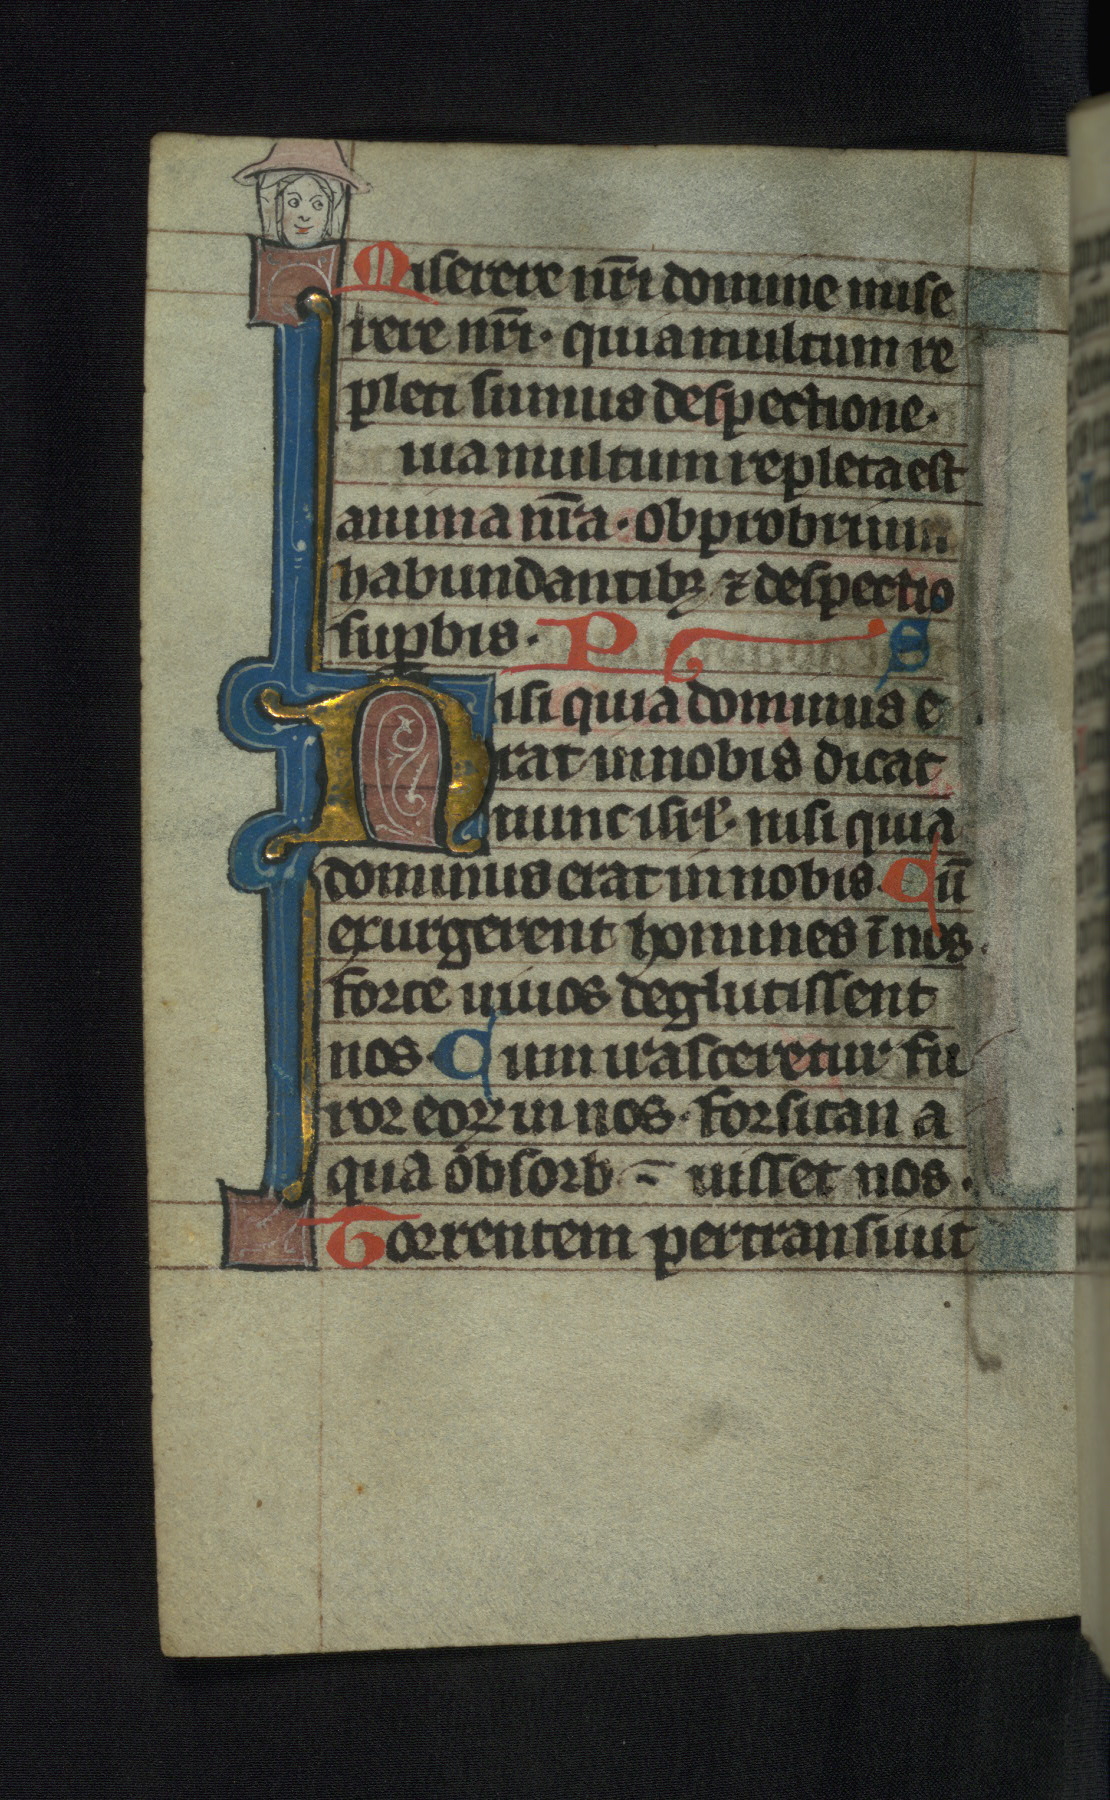 Miserere nr̄i domine mise
rere nr̄i· quia multum re
pleti sumus despectione·
uia multum repleta est
anima nr̄a· obprobrium
habundantibꝫ ⁊ despectio
suꝑbis· Ps
Nisi quia dominus e
rat in nobis dicat
nunc isrl̄· nisi quia
dominus erat in nobis· Cū
exurgerent homines ī nos·
forte uiuos deglutissent
nos· Cum irasceretur fu
ror eoꝝ in nos· forsitan a
qua obsorb – uisset nos·
Torrentem pertransiuit